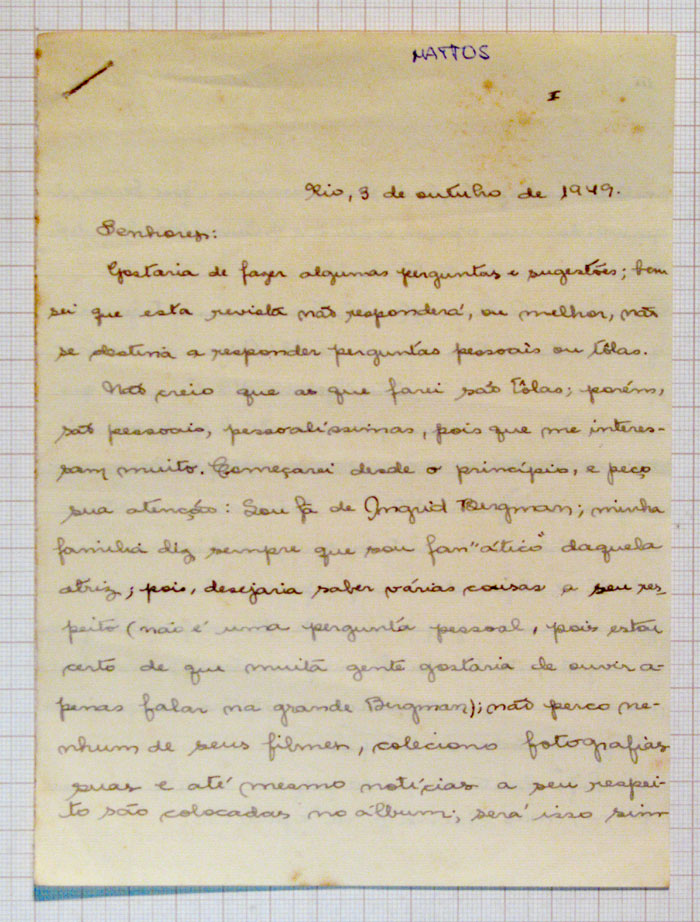 MATTOS
I
Rio, 3 de outubro de 1949.
Senhores:
Gostaria de fazer algumas perguntas e sugestões; bem
sei que esta revista não responderá, ou melhor, não
se destina a responder perguntas pessoais ou tôlas.
Não creio que as que farei são tôlas; porém,
são pessoais, pessoalíssimas, pois que me interes-
sam muito. Começarei desde o princípio, e peço
sua atenção: Sou fã de Ingrid Bergman; minha
família diz sempre que sou fan"ático" daquela
atriz; pois, desejaria saber várias cousas a seu res-
peito (não é uma pergunta pessoal, pois estou
certo de que muita gente gostaria de ouvir a-
penas falar na grande Bergman); não perco ne-
nhum de seus filmes, coleciono fotografias
suas e até mesmo notícias a seu respei-
to são colocadas no álbum; será isso sim